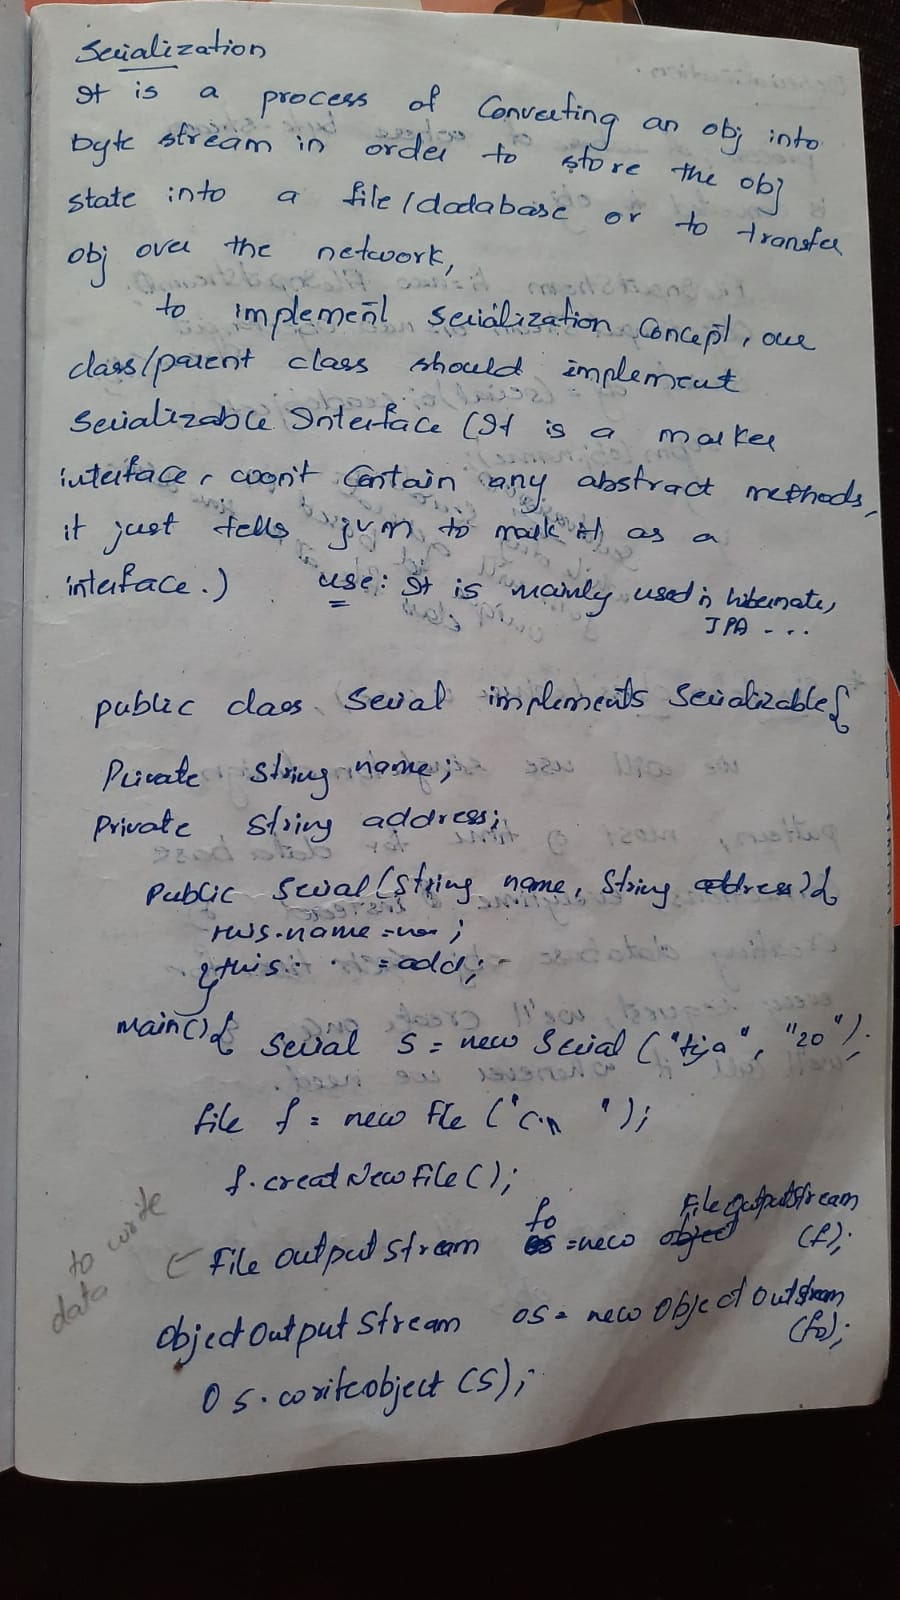 Serialization
It is a process of Converting an obj into
byte stream in order to store the obj
state into a file/dadabase or to transfer
obj over the network,
to implement Serialization Concept, our
class/parent class should implement
Serializable Interface (It is a marker
interface, won't Contain any abstract methods,
it just tells jvm to mark it as a
interface.) use: It is mainly used in hibernate,
JPA ...
public class Serial implements Serializable{
Private String name;
Private String address;
Public Serial (String name, String address){
this.name = ;
}this. = add;
main(){ Serial s = new Serial ("tija", "20");
file f = new File ("C:\ ");
f.creatNewFile();
to write
data
File output stream fo = new File Outputstream (f);
Object Output Stream os = new Object Outstream
(fo);
Os.writeobject (S);